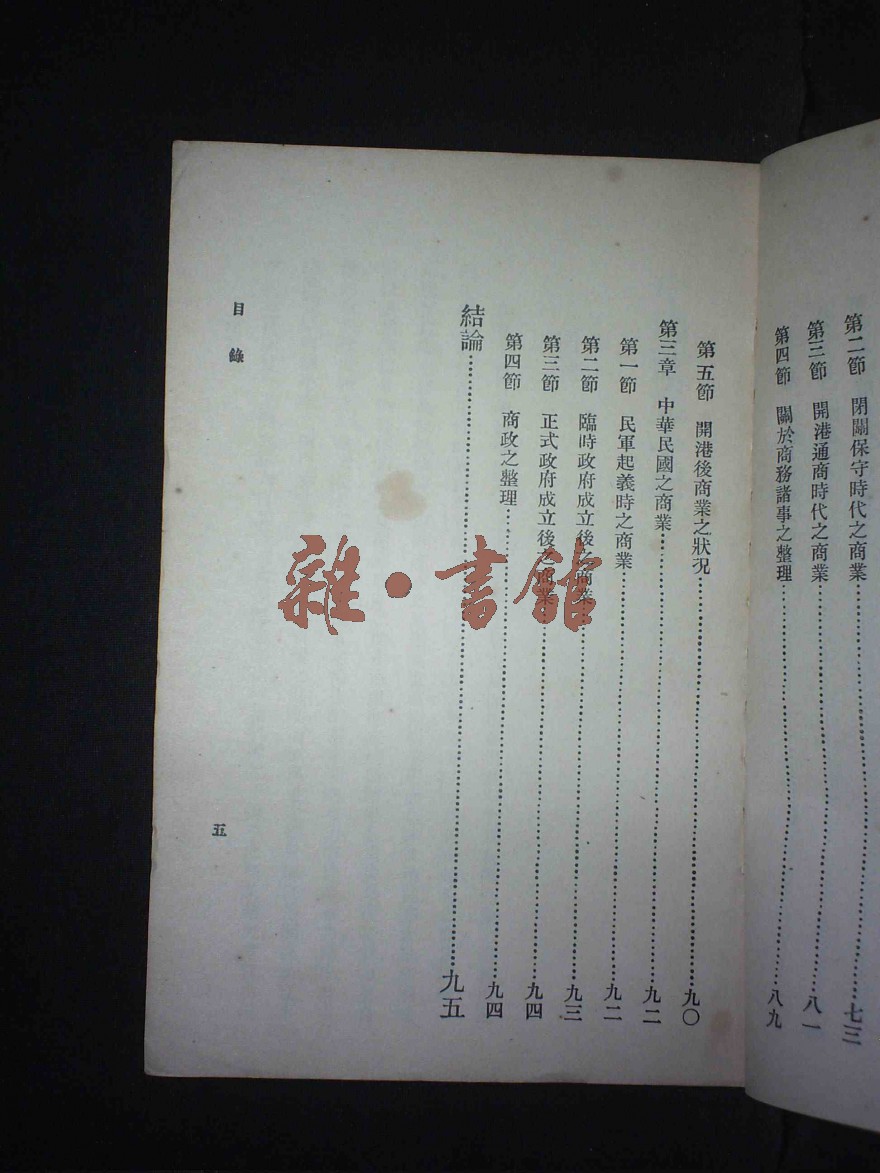 第二節　閉關保守時代之商業……七三
第三節　開港通商時代之商業……八一
第四節　關於商務諸事之整理……八九
第五節　開港後商業之狀況……九〇
第三章　中華民國之商業……九二
第一節　民軍起義時之商業……九二
第二節　臨時政府成立後之商業……九三
第三節　正式政府成立後之商業……九四
第四節　商政之整理……九四
結論……九五
目錄
五
雜·書館